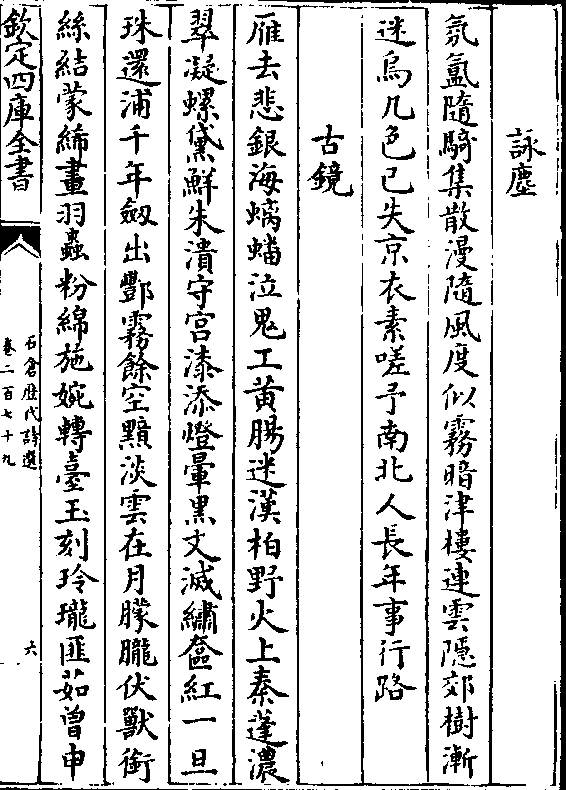 詠塵
氛氳隨騎集散漫隨風度似霧暗津樓連雲隱郊樹漸
迷烏几色已失京衣素嗟予南北人長年事行路
古鏡
雁去悲銀海螭蟠泣鬼工黄腸迷漢柏野火上秦蓬濃
翠凝螺黛鮮朱潰守宮漆添燈暈黒文滅繡奩紅一旦
珠還浦千年劔出酆霧餘空黯淡雲在月朦朧伏獸銜
絲結蒙絺畫羽蟲粉綿施婉轉臺玉刻玲瓏匪茹曾申
欽定四庫全書
石倉歴代詩選
卷二百七十九
六